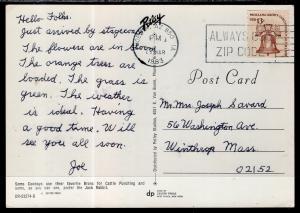 Hello Folks.
Just arrived by stagecoach
The flowers are in bloom
The orange trees are
loaded. The grass is
green. The weather
is ideal. Having
a good time. Will
see you all soon.
Joe
PM
MAR
1983
ALWAYS USE
ZIP CODE
Post Card
Mr. Mrs Joseph Savard
56 Washington Ave.
Winthrop Mass
02152
Some Cowboys use their favorite Bronc for Cattle Punching and
some, as you can see, prefer the Jack Rabbit.
dp